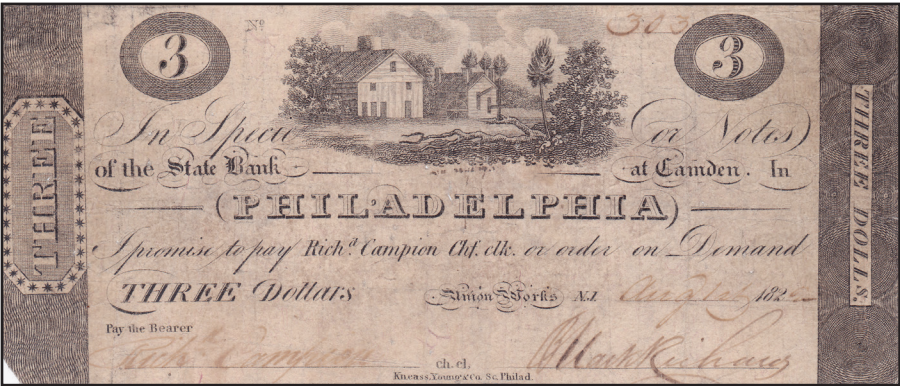 No 303
3 3
In Specie or Notes
of the State Bank at Camden. In
(PHILADELPHIA)
I promise to pay Richd. Campion Chf. clk. or order on Demand
THREE Dollars Union Works N.J. 182
Pay the Bearer
Richd. Campion ch. cl,
Kneass, Young & Co. Sc. Philad.
THREE
THREE DOLLS.